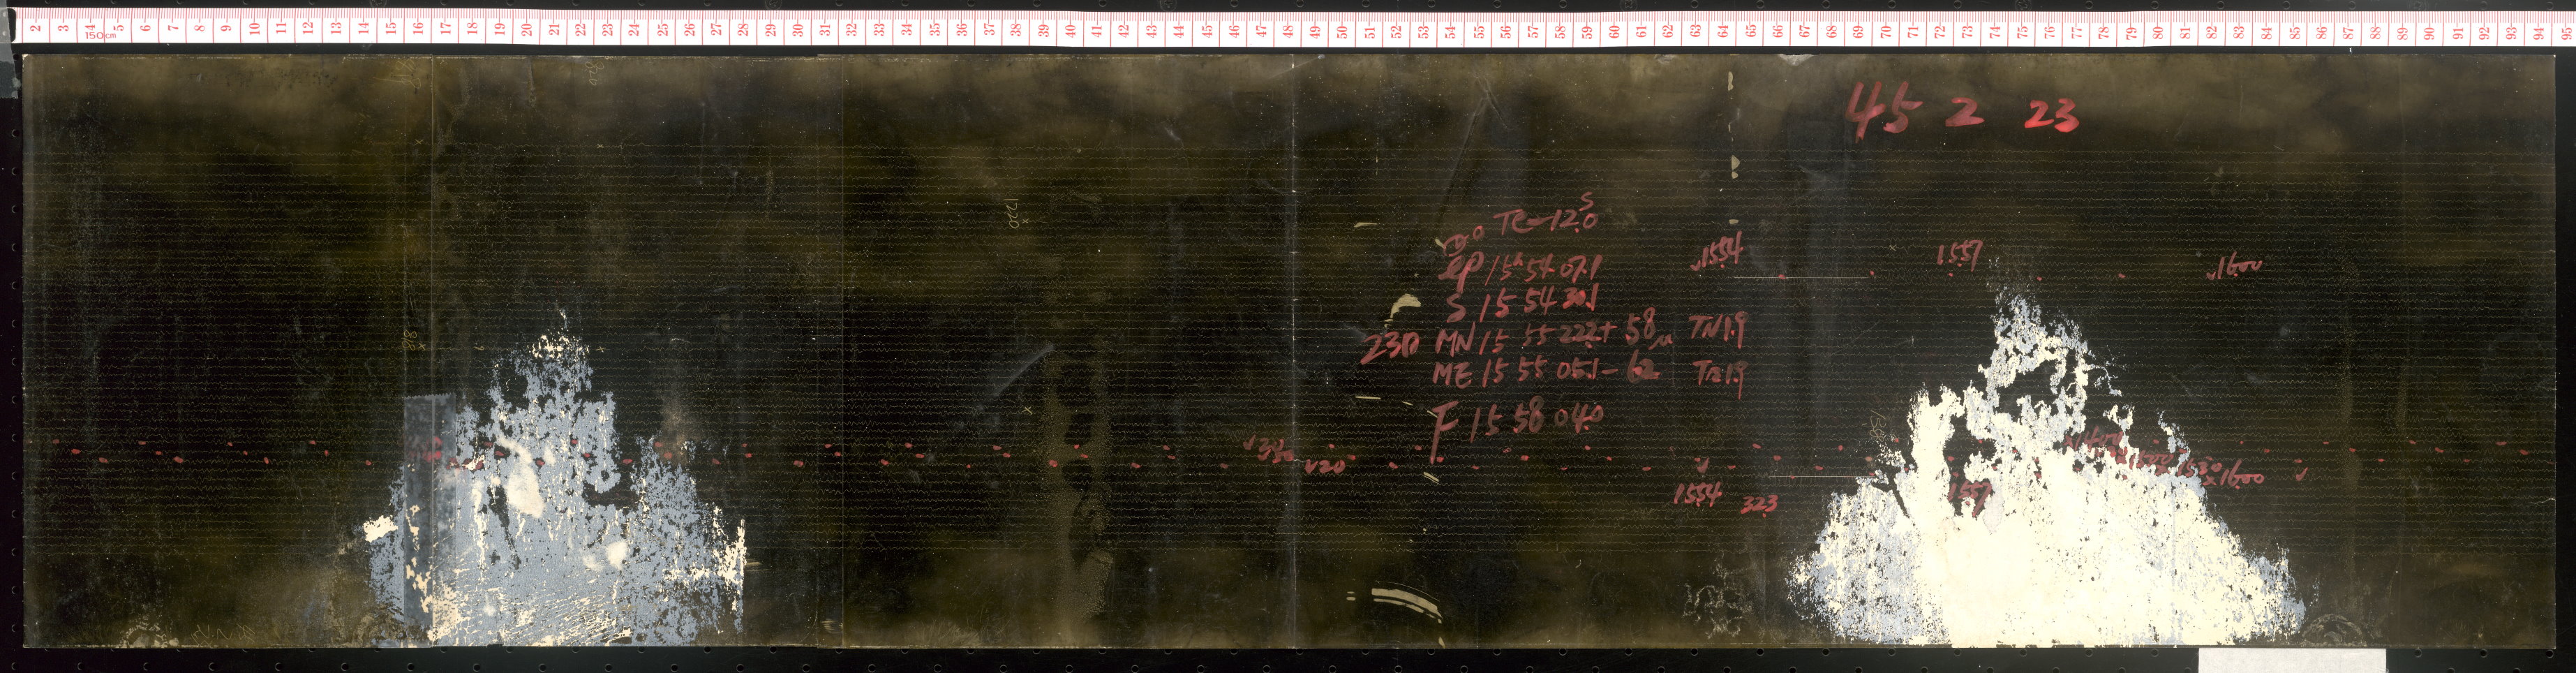 2 3 4 5 6 7 8 9 10 11 12 13 14 15 16 17 18 19 20 21 22 23 24 25 26 27 28 29 30 31 32 33 34 35 36 37 38 39 40 41 42 43 44 45 46 47 48 49 50 51 52 53 54 55 56 57 58 59 60 61 62 63 64 65 66 67 68 69 70 71 72 73 74 75 76 77 78 79 80 81 82 83 84 85 86 87 88 89 90 91 92 93 94 95
150cm
45 2 23
1220
eP 15h 54 07.1
S 15 54 30.1
230 MN 15 55 22.2 + 58μ TN 1.9
ME 15 55 05.1 - 62 TE 1.9
F 15 58 04.0
1554 1557 1600
330 20
1600
1554 323 1557